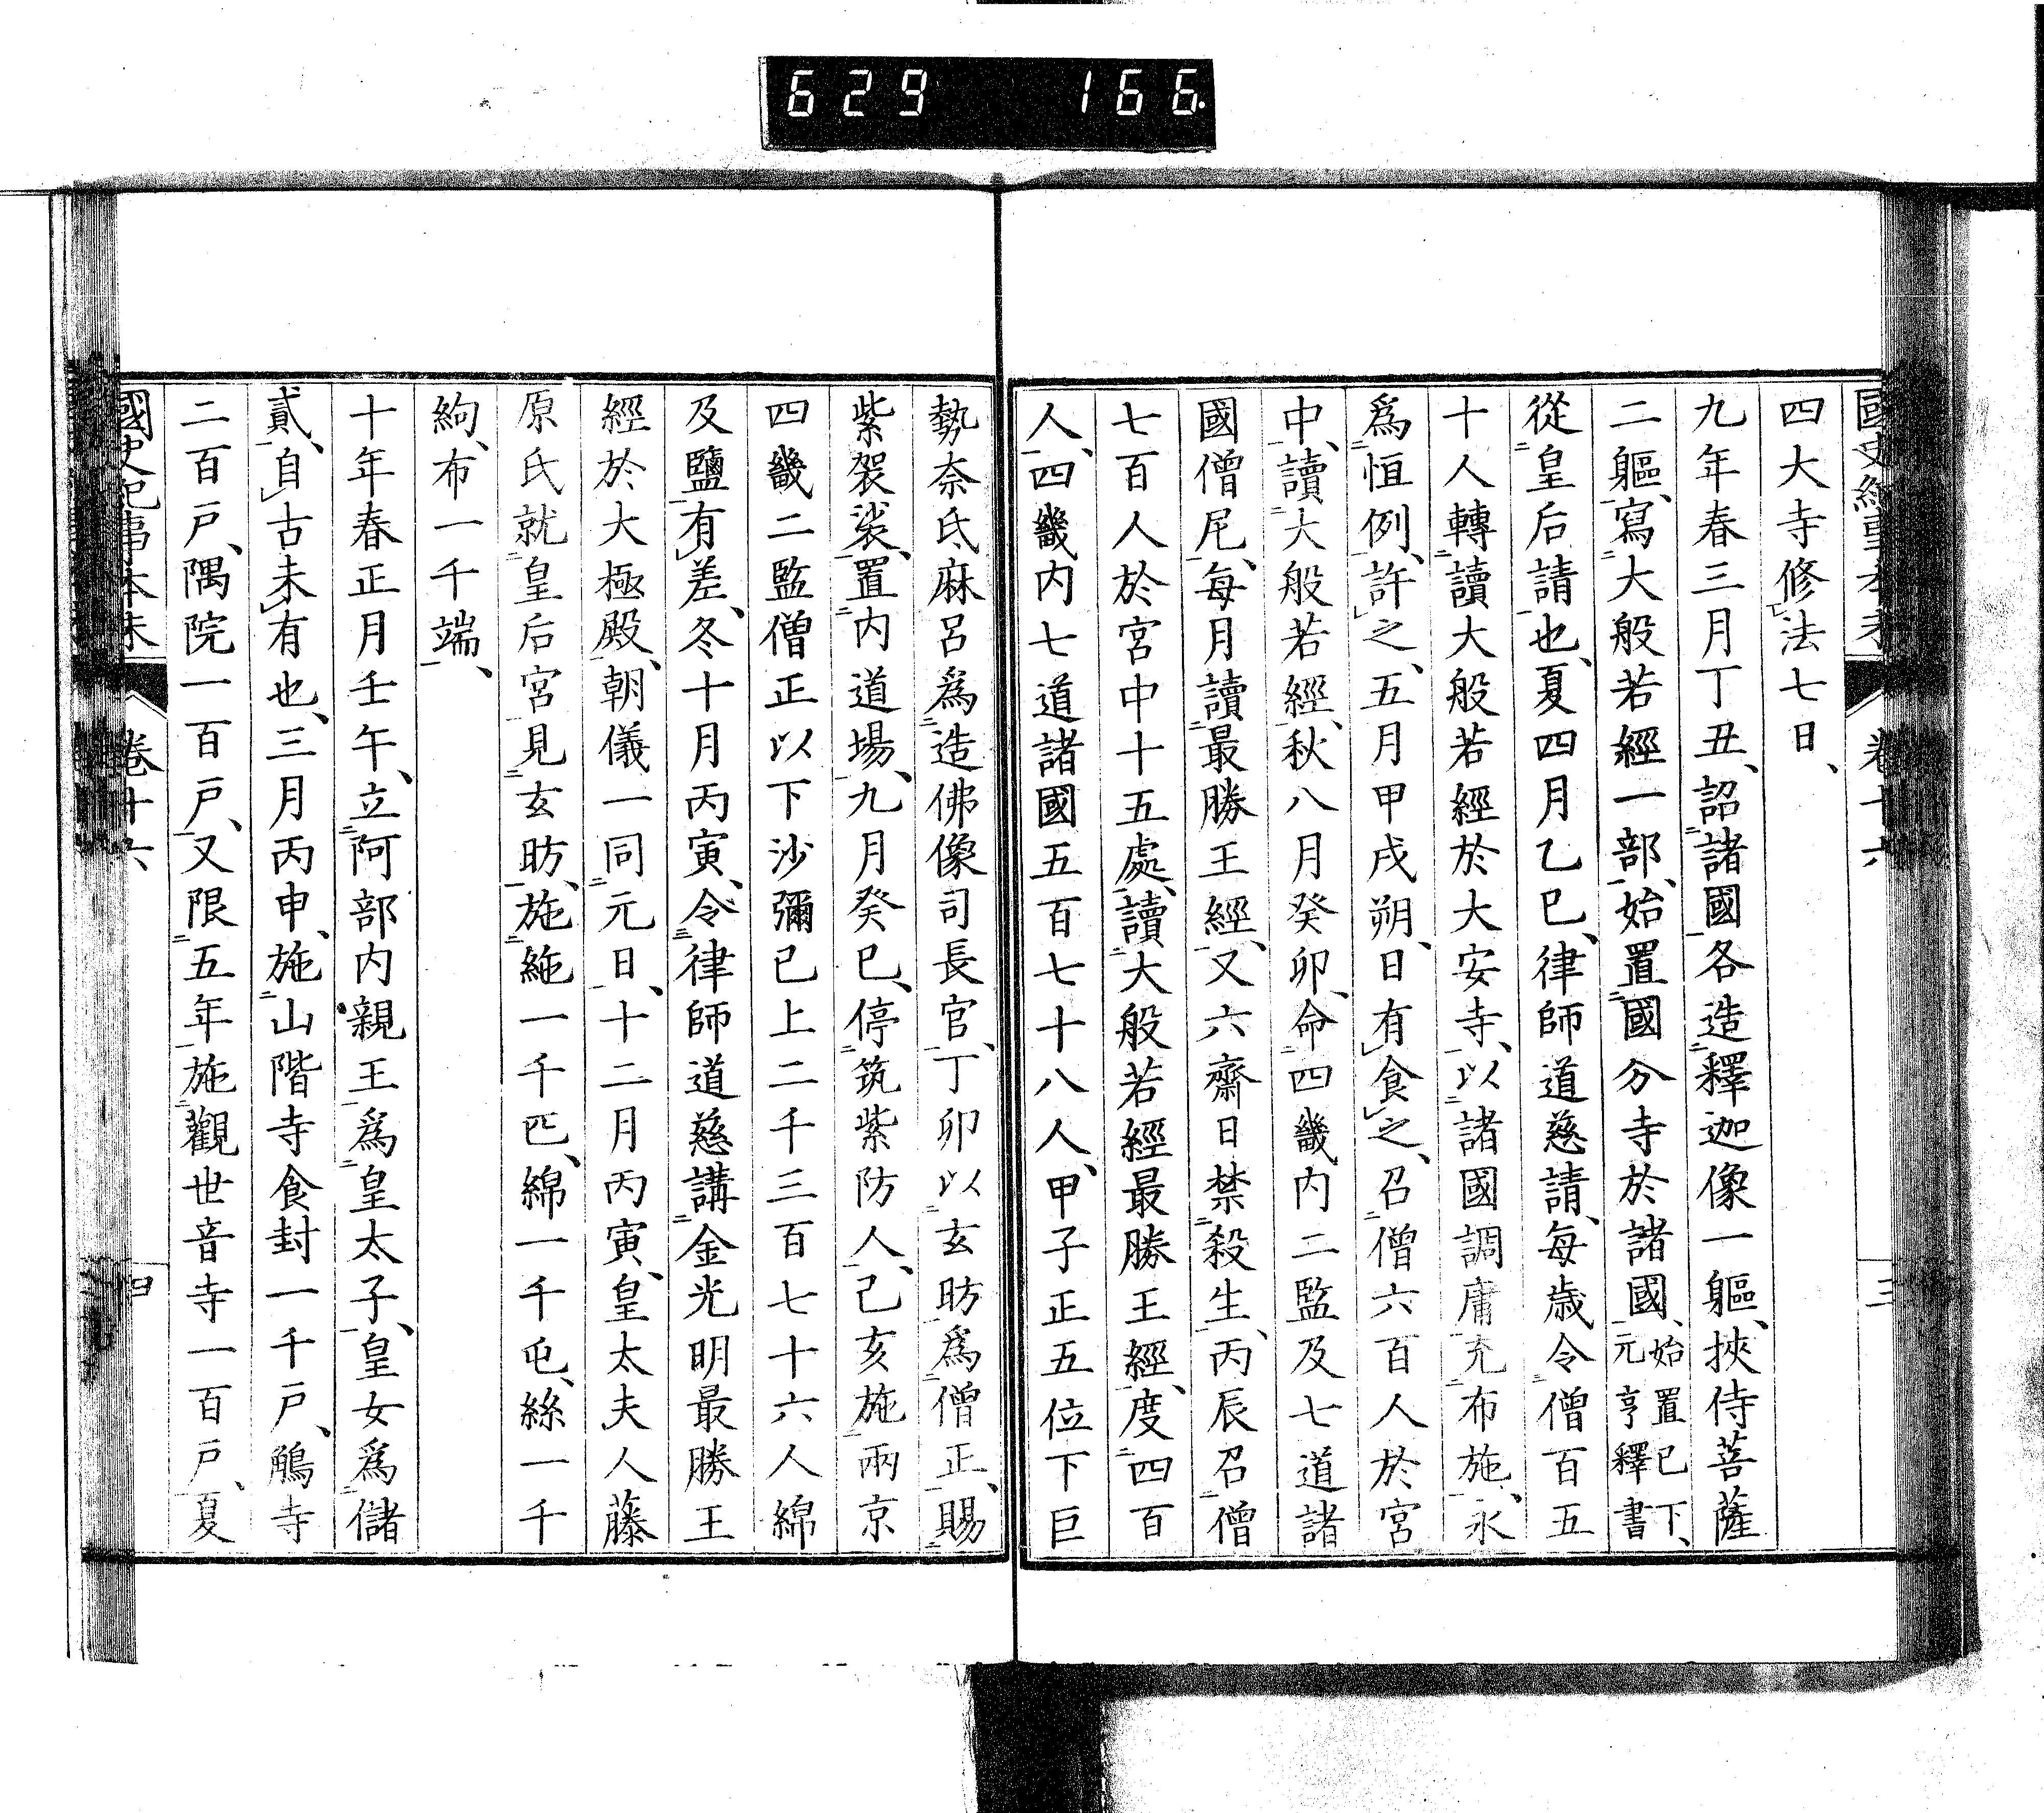 629 166
國史紀事本末 卷十六 三
四大寺修法七日、
九年春三月丁丑、詔諸國各造釋迦像一軀、挾侍菩薩
二軀、寫大般若經一部、始置國分寺於諸國、始置已下、元亨釋書
從皇后請也、夏四月乙巳、律師道慈請、每歲令僧百五
十人轉讀大般若經於大安寺、以諸國調庸充布施、永
爲恒例、許之、五月甲戌朔、日有食之、召僧六百人於宮
中、讀大般若經、秋八月癸卯、命四畿内二監及七道諸
國僧尼、每月讀最勝王經、又六齋日禁殺生、丙辰召僧
七百人於宮中十五處、讀大般若經最勝王經、度四百
人、四畿内七道諸國五百七十八人、甲子正五位下巨
勢奈氐麻呂爲造佛像司長官、丁卯以玄昉爲僧正、賜
紫袈裟、置内道場、九月癸巳、停筑紫防人、己亥施兩京
四畿二監僧正以下沙彌已上二千三百七十六人綿
及鹽有差、冬十月丙寅、令律師道慈講金光明最勝王
經於大極殿、朝儀一同元日、十二月丙寅、皇太夫人藤
原氏就皇后宮見玄昉、施絁一千匹、綿一千屯、絲一千
絇、布一千端、
十年春正月壬午、立阿部内親王爲皇太子、皇女爲儲
貳、自古未有也、三月丙申、施山階寺食封一千戸、鵤寺
二百戸、隅院一百戸、又限五年施觀世音寺一百戸、夏
國史紀事本末 卷十六 四